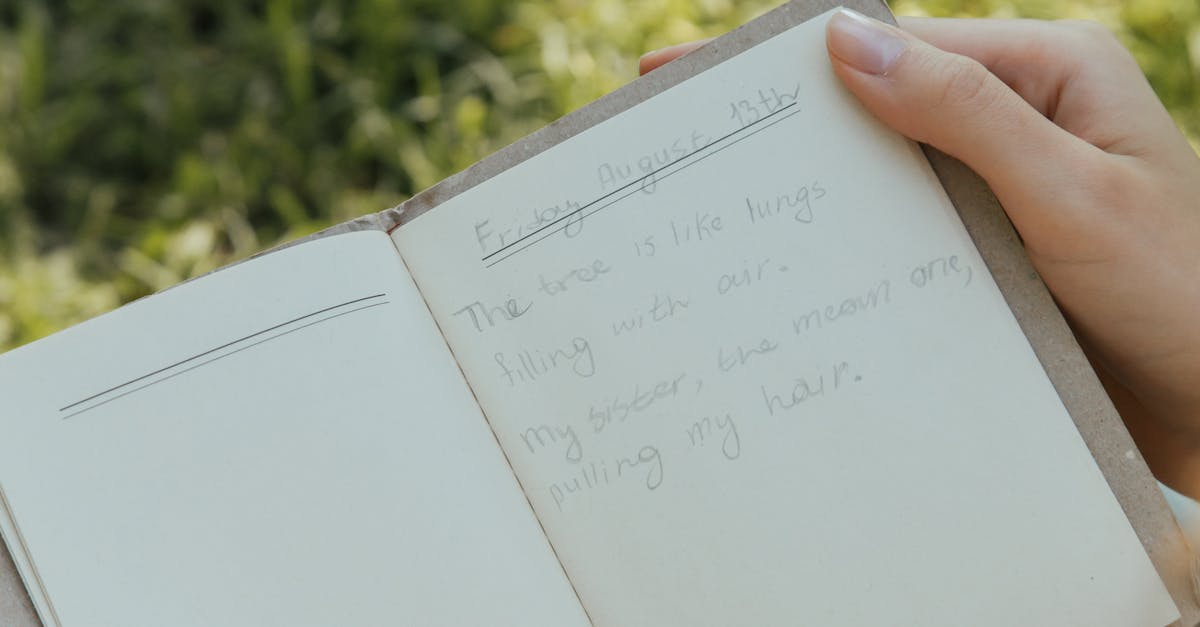 Friday August 13th
The tree is like lungs
filling with air.
My sister, the mean one,
pulling my hair.